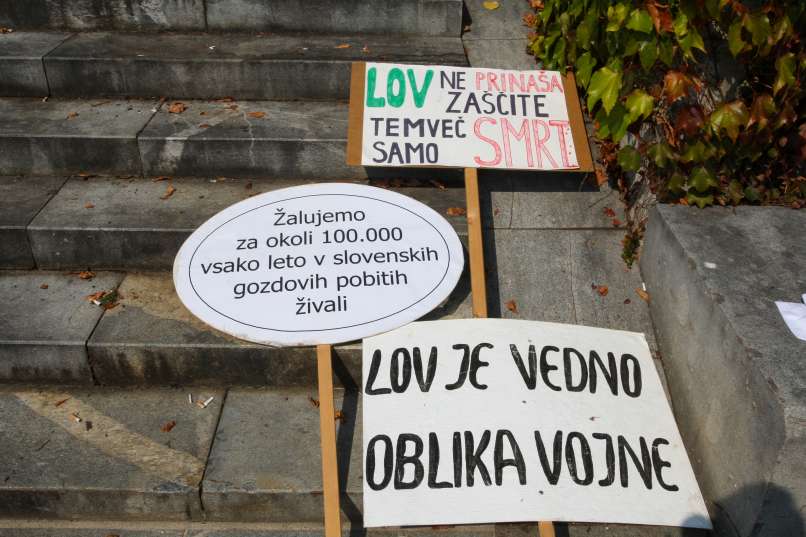 LOV NE PRINAŠA
ZAŠČITE
TEMVEČ SMRT
SAMO
Žalujemo
za okoli 100.000
vsako leto v slovenskih
gozdovih pobitih
živali
LOV JE VEDNO
OBLIKA VOJNE